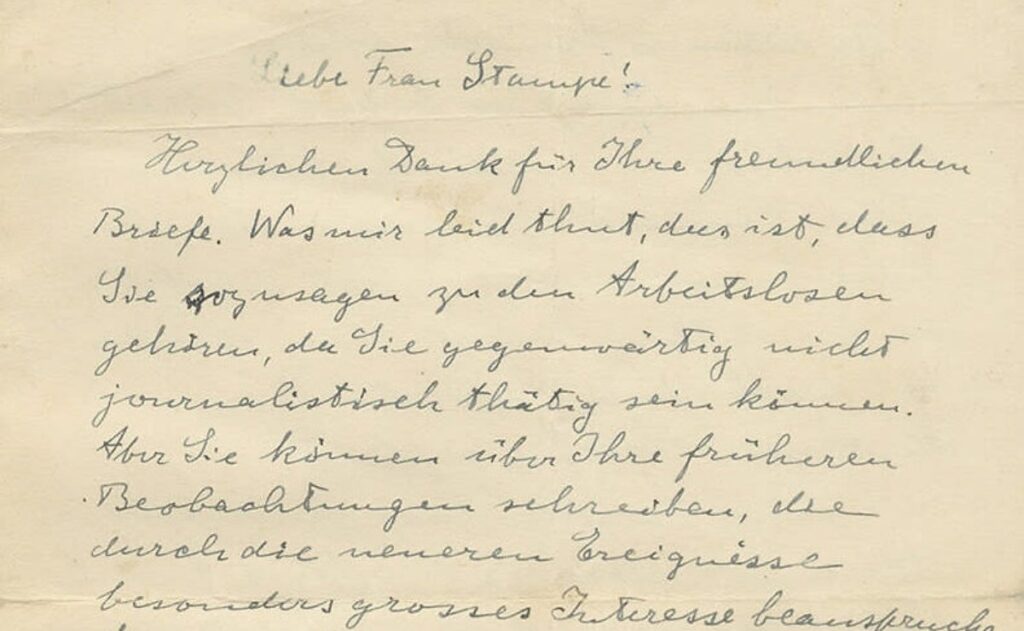 Liebe Frau Stampe!
Herzlichen Dank für Ihre freundlichen
Briefe. Was mir leid thut, das ist, dass
Sie sozusagen zu den Arbeitslosen
gehören, da Sie gegenwärtig nicht
journalistisch thätig sein können.
Aber Sie können über Ihre früheren
Beobachtungen schreiben, die
durch die neueren Ereignisse
besonders grosses Interesse